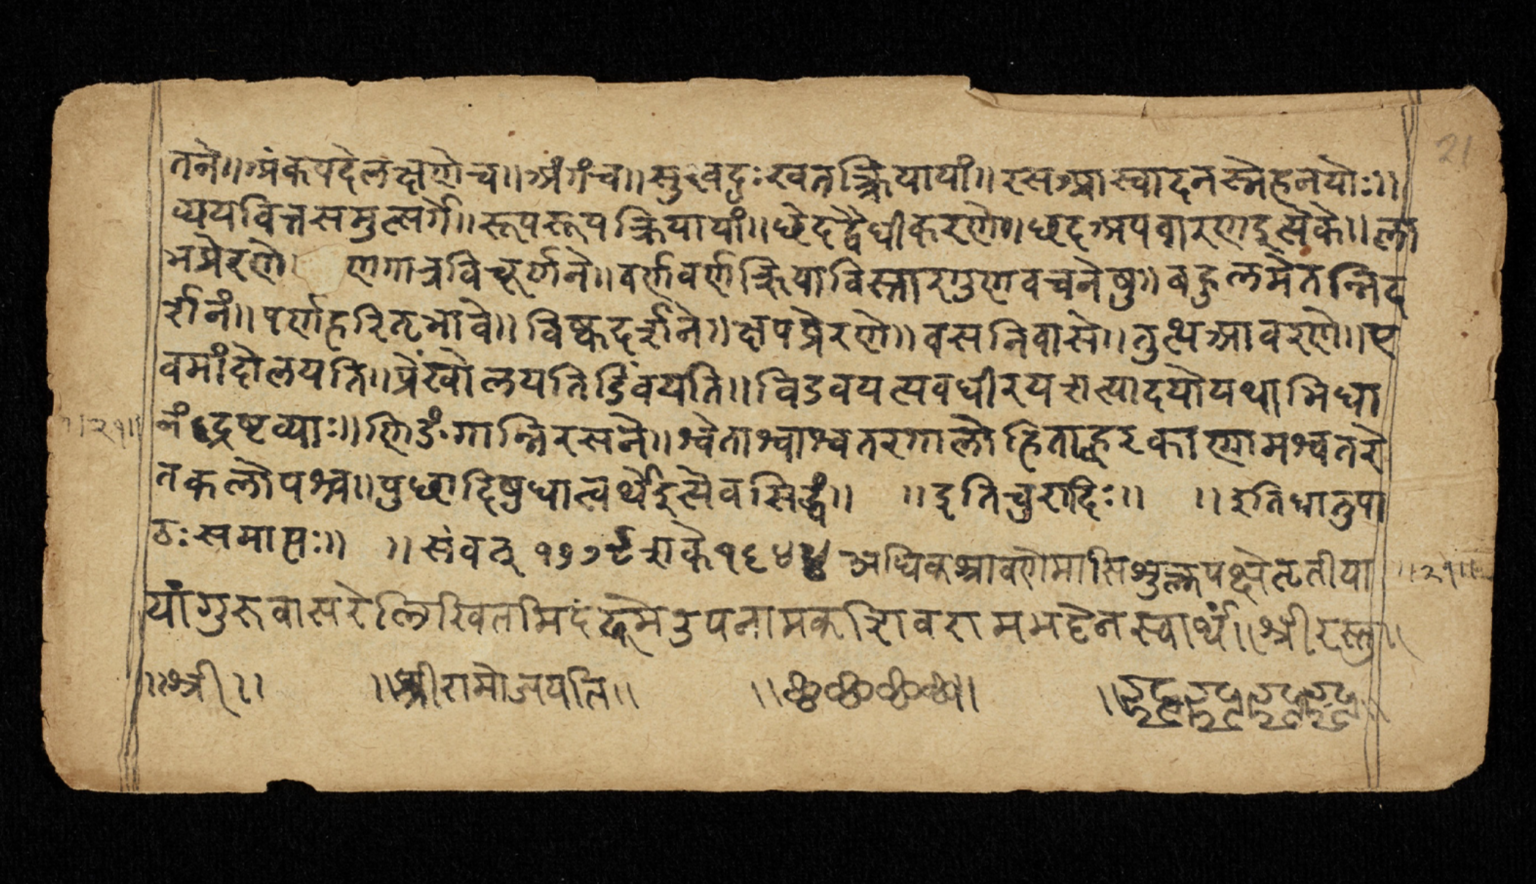 तने॥अंकपदेलक्षणेच॥अंगंच॥सुखदुःखतत्क्रियायां॥रसआस्वादनस्नेहनयोः॥
व्ययवित्तसमुत्सर्गे॥रूपरूपक्रियायां॥छेदद्वैधीकरणे॥छदअपवारणइत्येके॥ला
भप्रेरणे॥ णगात्रविचूर्णने॥वर्णवर्णक्रियाविस्तारगुणवचनेषु॥बहुलमेतन्निद
र्शनं॥पर्णहरितभावे॥विष्कदर्शने॥क्षपप्रेरणे॥वसनिवासे॥तुत्थआवरणे॥ए
वमांदोलयति॥प्रेंखोलयतिडिंबयति॥विडवयत्यवधीरयत्यादयोयथाभिधा
नंद्रष्टव्याः॥णिङंगान्निरसने॥श्वेताश्वाश्वतरगालोहिताह्वरकाणामश्वतरे
तकलोपश्च॥पुछादिषुधात्वर्थेइत्येवसिद्धं॥ ॥इतिचुरादिः॥ ॥इतिधातुपा
ठःसमाप्तः॥ ॥संवत् १७७९शके१६४४ अधिकश्रावणेमासिशुक्लपक्षेतृतीया
यांगुरुवासरेलिखितमिदं उपनामकशिवरामभट्टेनस्वार्थं॥श्रीरस्तु॥
॥श्री॥ ॥श्रीरामोजयति॥ ॥छ॥छ॥छ॥छ॥
॥२१॥
॥२१॥
21